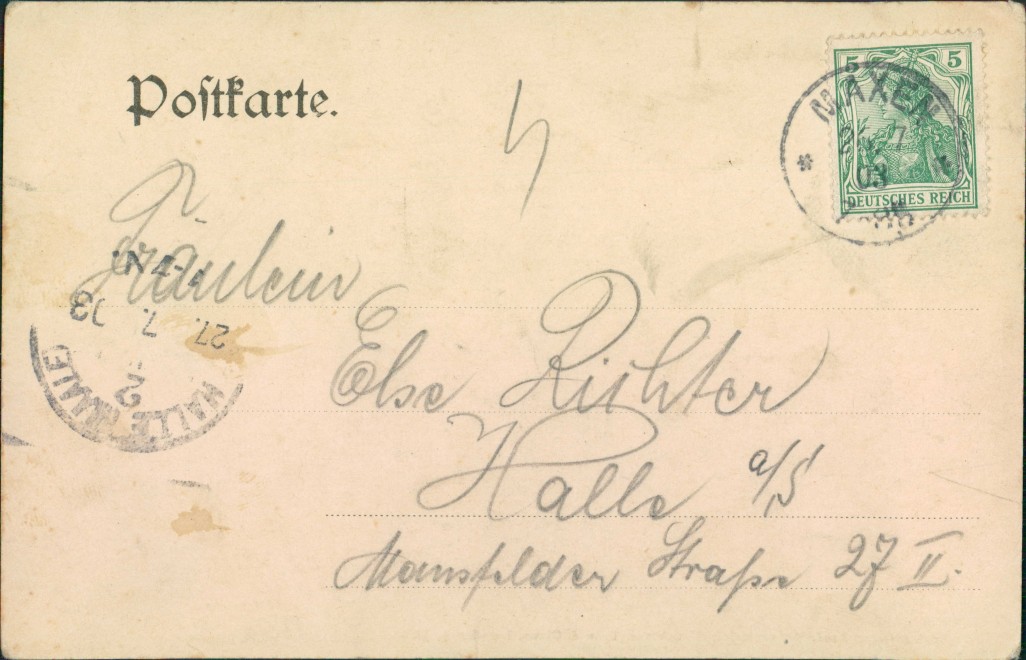 Postkarte.
5 5
DEUTSCHES REICH
MAXEN
7
03
Fräulein
Else Richter
Halle a/S
Mansfelder Straße 27 II.
27. 7. 03
7-8 N.
2
HALLE (SAALE)